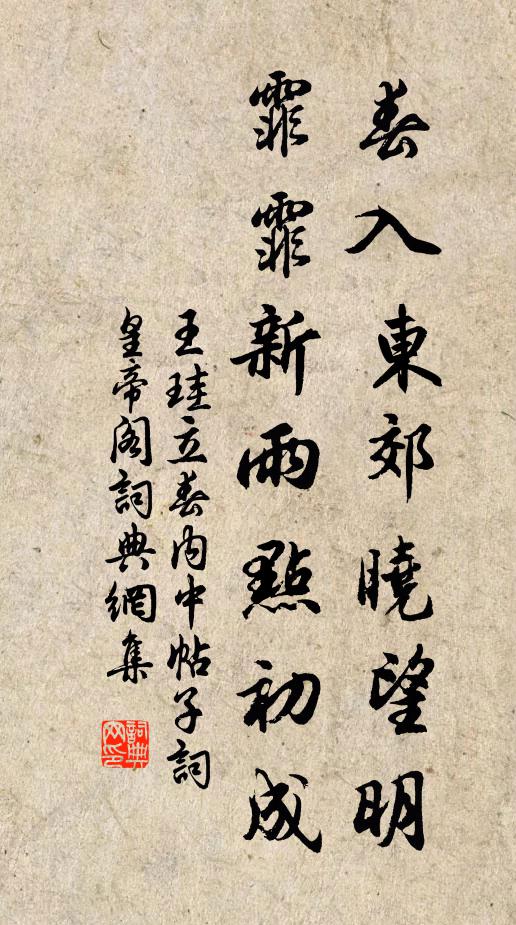 春入東郊曉望明
霏霏新雨點初成
王珪立春内中帖子詞
皇帝閣詞典網集
詞典